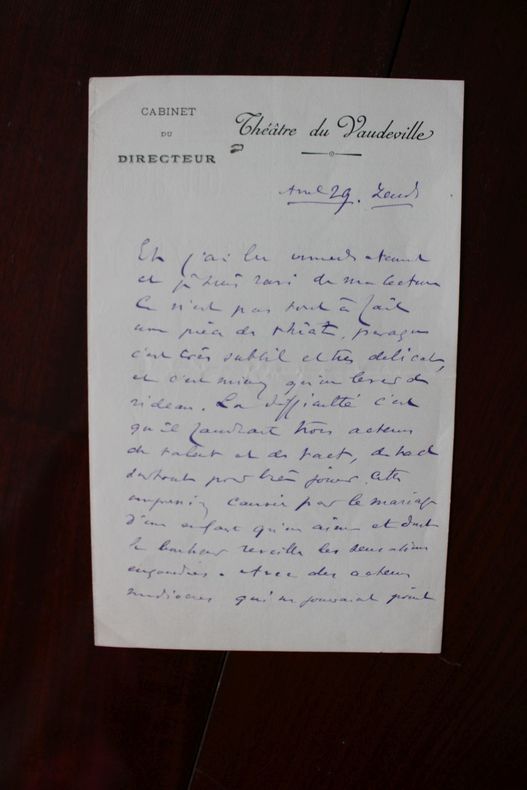 CABINET
DU
DIRECTEUR
Théâtre du Vaudeville
Avril 29. Lundi
Et j'ai lu immédiatement
et je suis ravi de ma lecture
Ce n'est pas tout à fait
une pièce de théât. parceque
c'est très subtil et très délicat,
et c'est mieux qu'un lever de
rideau. La difficulté c'est
qu'il faudrait trois acteurs
de talent et de tact, de tact
surtout pour bien jouer cette
par le mariage
d'un enfant qu'on aime et dont
le bonheur reveille les sensations
Avec des acteurs
médiocres qui ne point